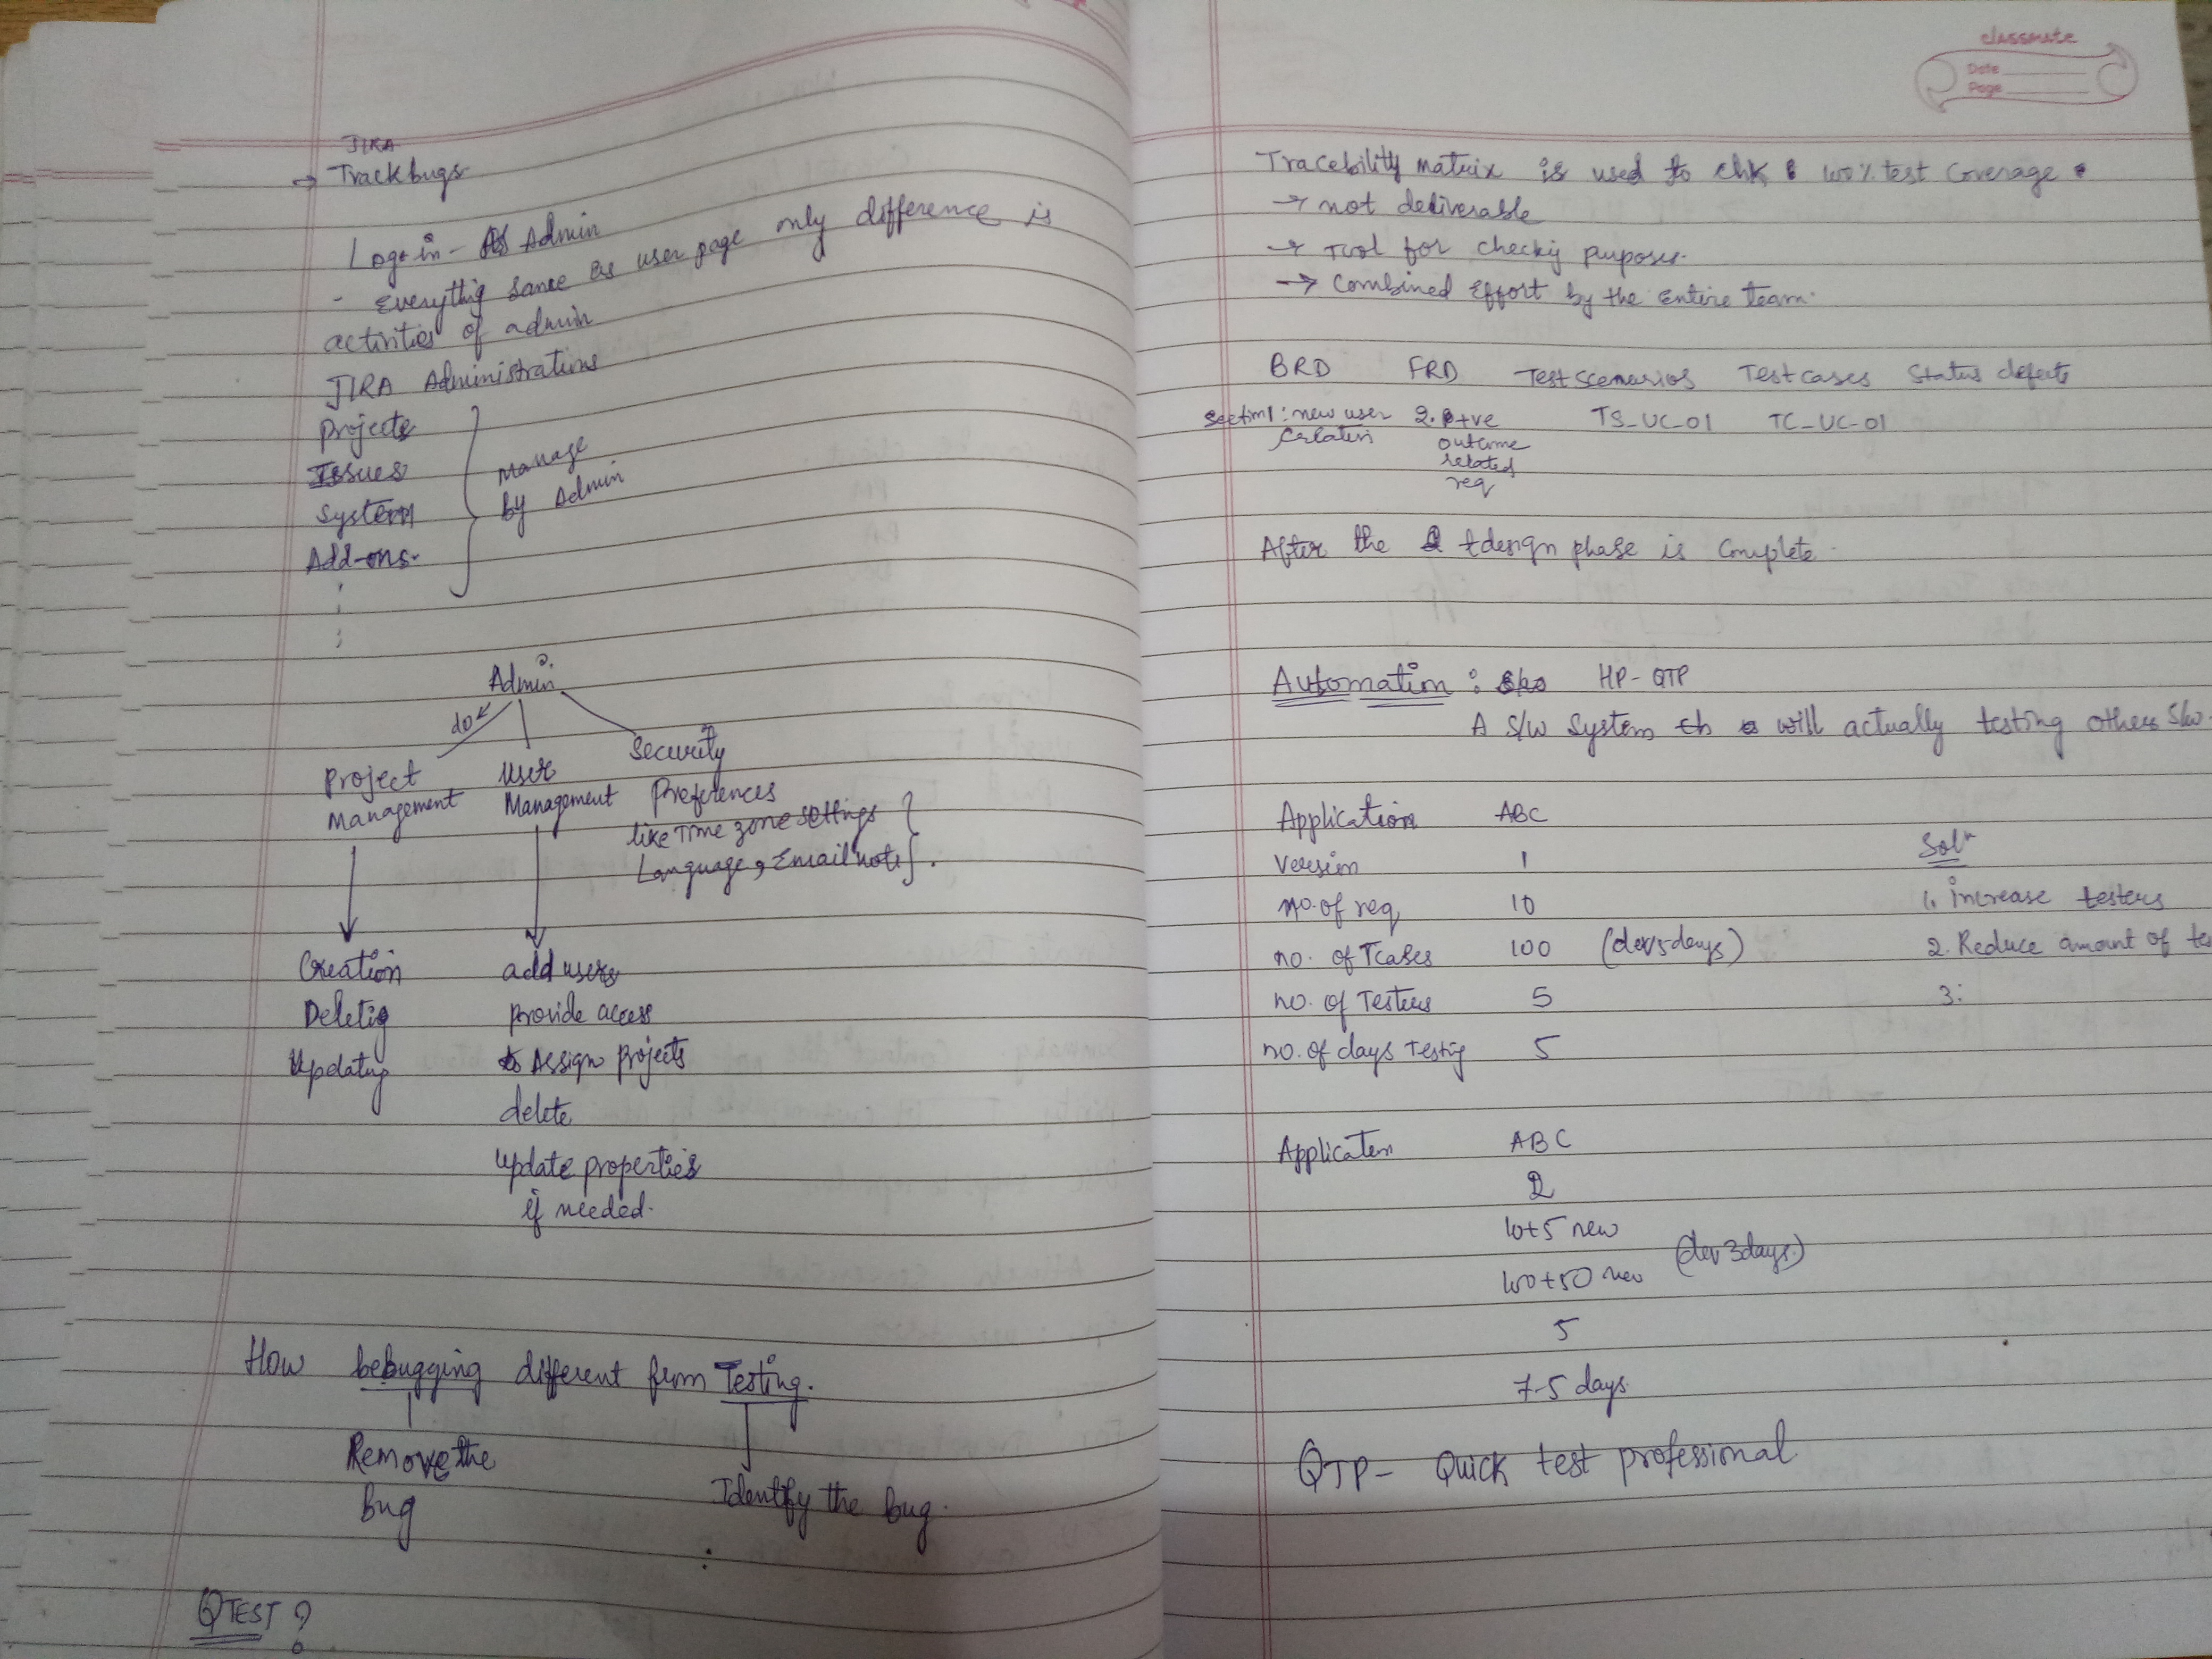 JIRA
→ Track bugs
Log in - As Admin
- Everythig same as user page only difference is
activities of admin
JIRA Administrations
Projects
Issues
System
Add-ons.
Manage
by Admin
Admin
do
Project
Management
User
Management
Security
Preferences
like Time zone settings
Language, Email note
Creation
Deletig
Updatig
add users
provide access
Assign projects
delete
update properties
if needed.
How bebugging different from Testing.
Remove the
Bug
Identify the bug.
QTEST?
classmate
Date
Page
Tracebility matrix is used to chk 100% test coverage
→ not deliverable
→ Tool for checkig purposes.
→ Combined Effort by the Entire team.
BRD FRD Test Scenarios Test cases Status defects
Section 1: new user 2. +ve TS_UC_01 TC_UC-01
creation outcome
related
req
After the tdesign phase is complete.
Automation: HP-QTP
A S/W System will actually testing others S/w.
Application ABC
Version 1
no. of req 10
no. of Tcases 100 (dev 5 days)
no. of Testers 5
no. of days Testig 5
Solⁿ
1. increase testers
2. Reduce amount of te
3:
Application ABC
2
10+5 new
100+50 new (dev 3 days.)
5
7-5 days
QTP- Quick test professional